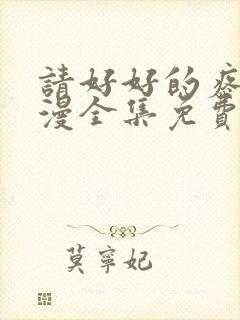 請好好的疼
漫全集免費
莫寧妃